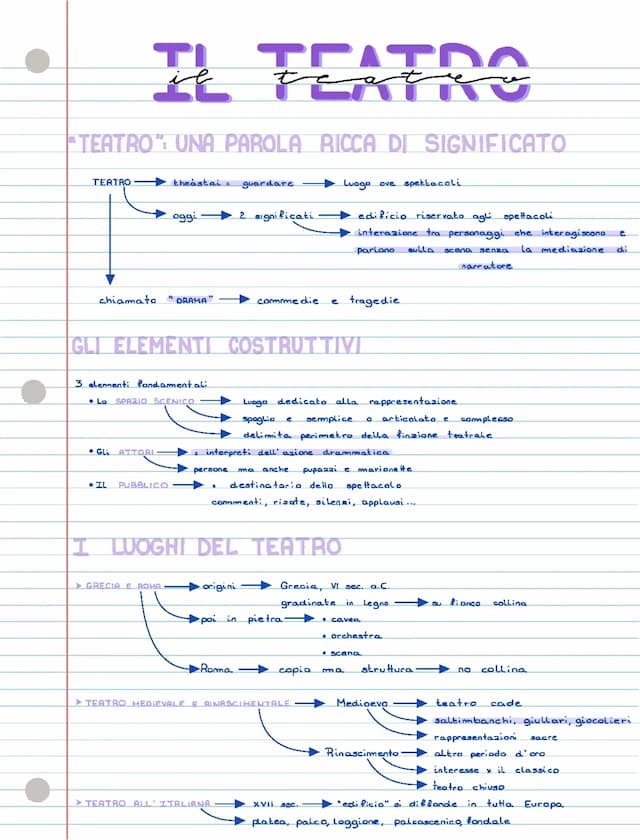 IL TEATRO
il teatro
"TEATRO": UNA PAROLA RICCA DI SIGNIFICATO
TEATRO → theàstai = guardare → luogo ove spettacoli
oggi → 2 significati → edificio riservato agli spettacoli
interazione tra personaggi che interagiscono e
parlano sulla scena senza la mediazione di
narratore
chiamato "DRAMA" → commedie e tragedie
GLI ELEMENTI COSTRUTTIVI
3 elementi fondamentali:
• Lo SPAZIO SCENICO → luogo dedicato alla rappresentazione
spoglio e semplice o articolato e complesso
delimita perimetro della finzione teatrale
• Gli ATTORI → : interpreti dell'azione drammatica
persone ma anche pupazzi e marionette
• Il PUBBLICO → • destinatario dello spettacolo
commenti, risate, silenzi, applausi...
I LUOGHI DEL TEATRO
> GRECIA E ROMA → origini → Grecia, VI sec. a.C.
gradinate in legno → su fianco collina
poi in pietra → • cavea
• orchestra
• scena
Roma → copia ma struttura → no collina
> TEATRO MEDIEVALE E RINASCIMENTALE → Medioevo → teatro cade
saltimbanchi, giullari, giocolieri
rappresentazioni sacre
Rinascimento → altro periodo d'oro
interesse x il classico
teatro chiuso
> TEATRO ALL'ITALIANA → XVII sec. → "edificio" si diffonde in tutta Europa
platea, palco, loggione, palcoscenico, fondale